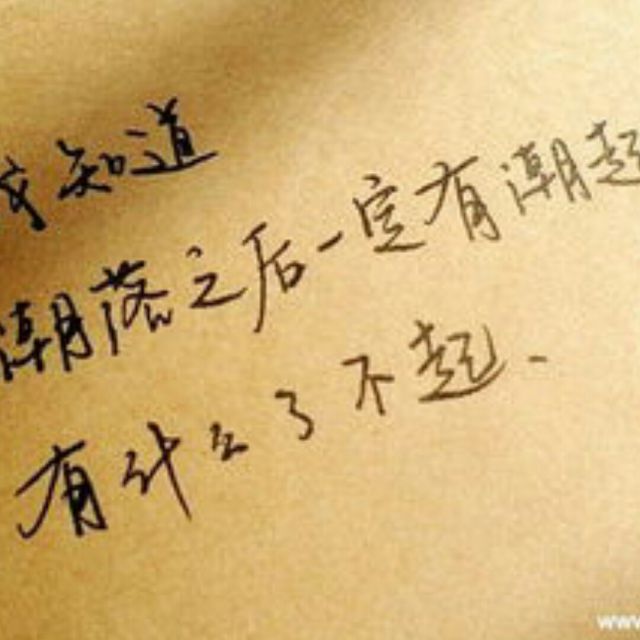 我知道
潮落之后一定有潮起
有什么了不起.
www.